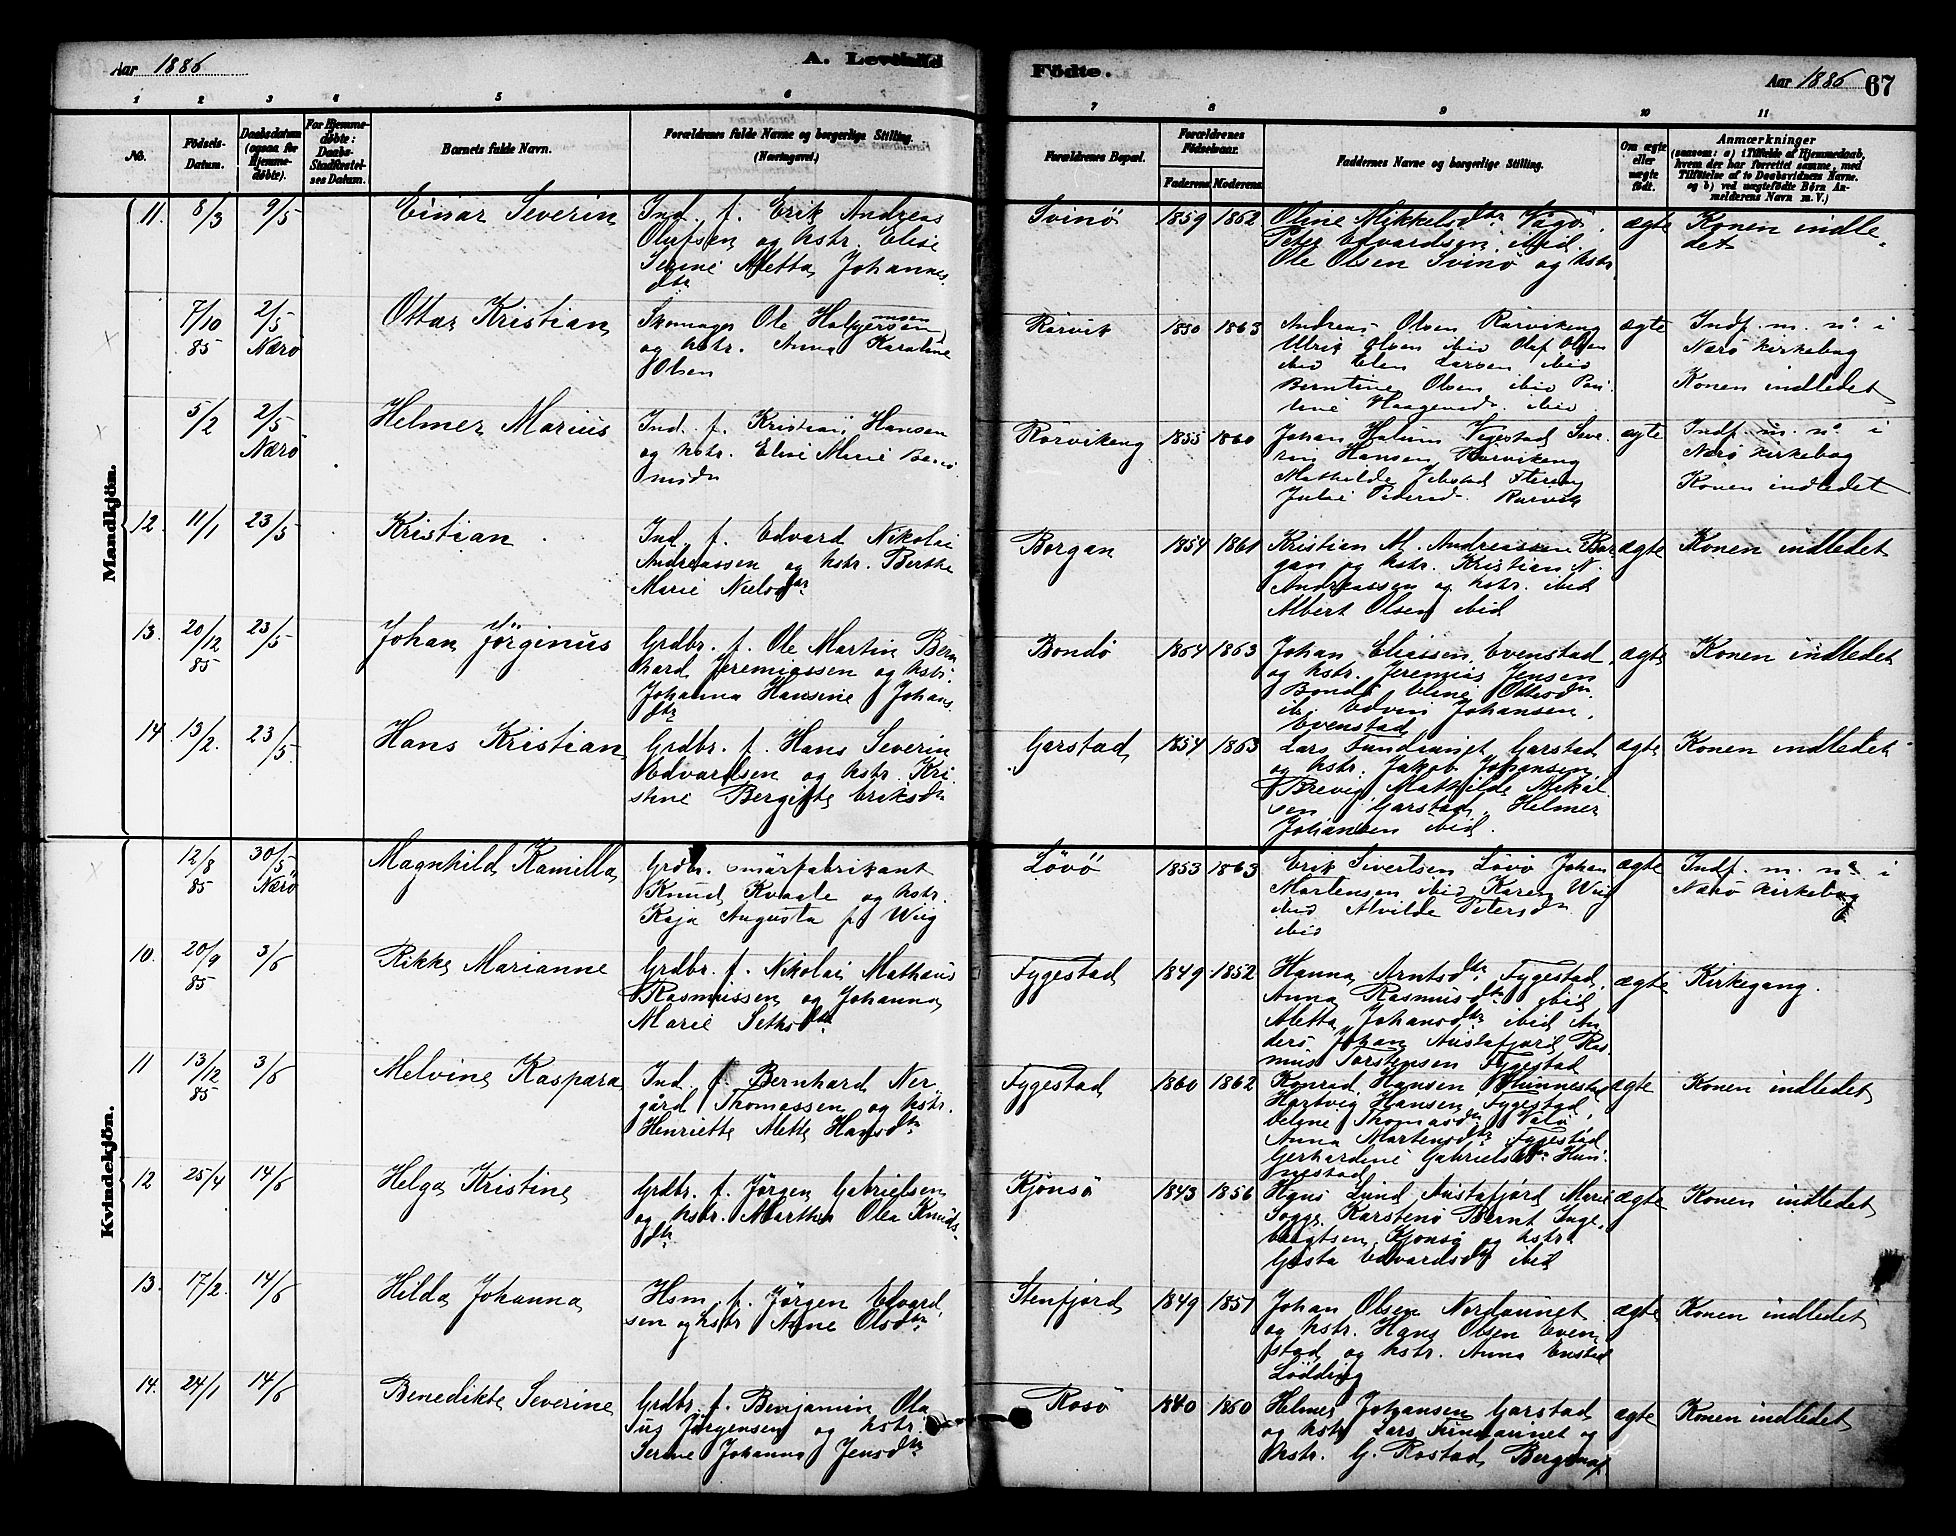 Aar 1886
A. Levende
Födte.
Aar 1886 67
1 2 3 4 5 6 7 8 9 10 11
No.
Födsels-
Datum.
Daabsdatum
(ogsaa for
Hjemme-
døbte).
For Hjemme-
døbte:
Daabs-
Stadfæstel-
ses Datum.
Barnets fulde Navn.
Forældrenes fulde Navne og borgerlige Stilling.
(Næringsvei.)
Forældrenes Bopæl.
Forældrenes
Födselsaar.
Faderens Moderens
Faddernes Navne og borgerlige Stilling.
Om ægte
eller
uægte
født.
Anmærkninger
(saasom: a) i Tilfælde af Hjemmedaab,
hvem der har forrettet samme, med
Tilföielse af to Daabsvidners Navne,
og b) ved uægtefödte Börn An-
melderens Navn m. V.)
Mandkjön.
11. 8/3 9/5
Einar Severin
Ind. f. Erik Andreas
Olufsen og hstr. Elise
Serine Aletta Johannes
dtr
Svinö 1859 1862
Oline Mikkelsdtr Vågö.
Peter Edvardsen ibid.
Ole Olsen Svinö og hstr
ægte
Konen indle-
det
7/10 85
2/5 Nærö
Ottar Kristian
Skomager Ole
og hstr. Anna Karoline
Olsen
Rörvik 1850 1863
Andreas Olsen Rörvikeng
Ulrik Olsen ibid Olaf Olsen
ibid Elen Larsen ibid
Berntine Olsen ibid
ibid
ægte
Indf. m. no. i
Nærö kirkebog
Konen indledet
5/2
2/5 Nærö
Helmer Marius
Ind. f. Kristian Hansen
og hstr. Elise Marie
Rörvikeng 1855 1860
Johan Seve-
rin Hansen Rörvikeng
Mathilde
Julie Rörvik
ægte
Indf. m. no. i
Nærö kirkebog
Konen indledet
12. 11/1 23/5
Kristian
Ind. f. Edvard Nikolai
Andreassen og hstr. Berthe
Marie Nielsdtr
Borgan 1854 1861
Kristian M. Andreassen Bor-
gan og hstr. Kristian N.
Andreassen og hstr. ibid
Albert Olsen ibid
ægte
Konen indledet
13. 20/12 85 23/5
Johan Jörginus
Grdbr. f. Ole Martin Bern
hard Jeremiassen og hstr.
Johanna Hansine Johans
dtr
Bondö 1864 1863
Johan Eliassen Evenstad
og hstr. Jeremias Jensen
Bondö Oline Ottesdtr
ib. Edvin Johansen,
Evenstad
ægte
Konen indledet
14. 13/2. 23/5.
Hans Kristian
Grdbr. f. Hans Severin
Edvardsen og hstr. Kri-
stine Bergitte Eriksdtr
Garstad 1854 1863
Lars Garstad
og hstr. Jakob Johansen
Brevig Mathilde Mikal
sen Garstad, Helmer
Johansen ibid.
ægte
Konen indledet
Kvindekjön.
12/8 85
30/5 Nærö
Magnhild Kamilla
Grdbr. smörfabrikant
Knud Kvaale og hstr.
Kaja Augusta f. Wiig
Lövö 1853 1863
Erik Sivertsen Lövö Johan
Martensen ibid Karen Wiig
ibid Alvilde Petersdtr
ibid
ægte
Indf. m. no. i
Nærö kirkebog
10. 20/9 85 3/6
Rikke Marianne
Grdbr. f. Nikolai Mathæus
Rasmussen og Johanna
Marie Sethsdtr
Fygestad 1849 1852
Hanna Arntsdtr Fygestad,
Anna Rasmusdtr ibid
Aletta Johansdtr ibid An-
ders Johan Austafjord Ras-
mus Torstensen Fygestad
ægte
Kirkegang.
11 13/12 85 3/6
Melvine Kaspara
Ind. f. Bernhard Ner-
gård Thomassen og hstr.
Henriette Mette Hansdtr
Fygestad 1860 1862
Konrad Hansen Hunnestad
Hartvig Hansen Fygestad,
Thomasdtr
Anna Martensdtr Fygestad
Gerhardine Gabrielsdtr Hun-
nestad
ægte
Konen indledet
12 25/4 14/6
Helga Kristine
Grdbr. f. Jörgen Gabrielsen
og hstr. Martha Olea Knuds-
dtr
Kjönsö 1843 1856
Hans Lund Austafjord Marie
Karstenö Bernt Inge-
brigtsen Kjönsö og hstr
Gjista Edvardsdtr ibid
ægte
Konen indledet
13. 17/2. 14/6
Hilda Johanna
Hsm. f. Jörgen Edvard
sen og hstr Anne Olsdtr
Stenfjord 1849 1851
Johan Olsen Nordaunet
og hstr. Hans Olsen Even
stad og hstr. Anna Enstad
Lödding
ægte
Konen indledet
14. 24/1 14/6
Benedikte Severine
Grdbr. f. Benjamin Ola
Jörgensen og hstr.
Serine Johanna Jensdtr
Rosö 1840 1860
Helmer Johansen Garstad
og hstr Lars og
hstr. G. Rostad
ægte
Konen indledet